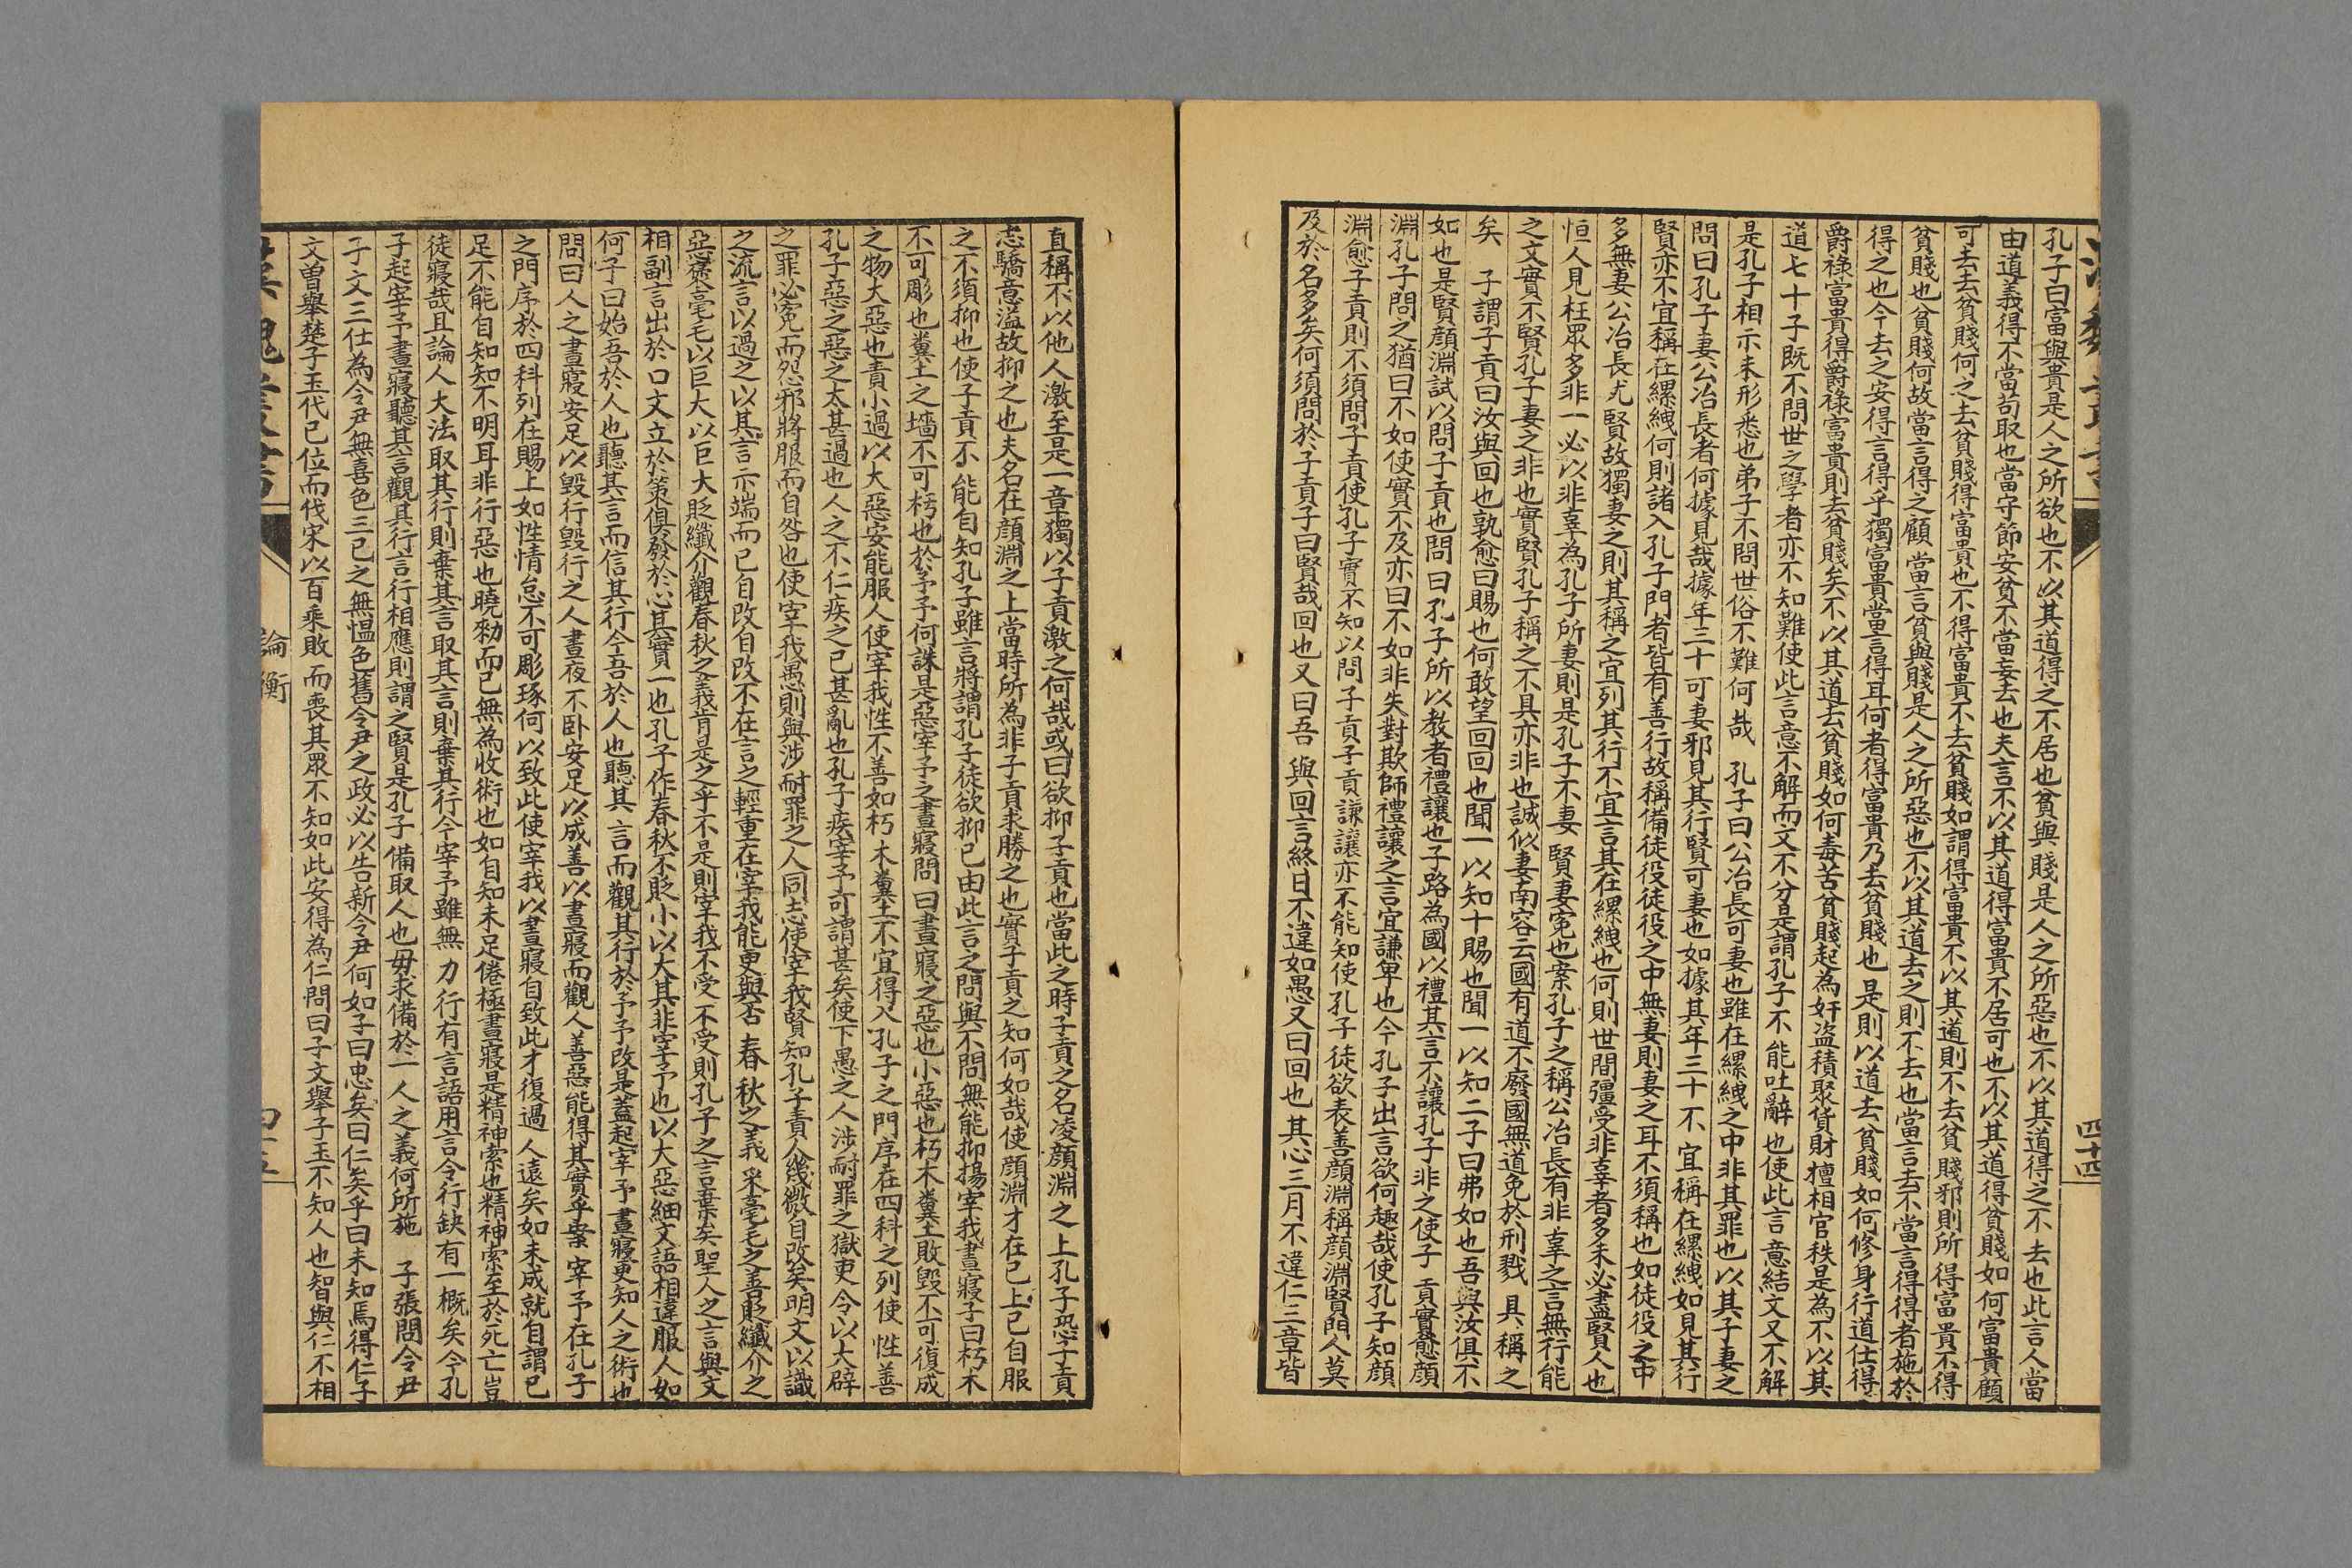 孔子曰富與貴是人之所欲也不以其道得之不居也貧與賤是人之所惡也不以其道得之不去也此言人當
由道義得不當苟取也當守節安貧不當妄去也夫言不以其道得富貴不居可也不以其道得貧賤如何富貴顧
可去去貧賤何之去貧賤得富貴也不得富貴不去貧賤如謂得富貴不以其道則不去貧賤邪則所得富貴不得
貧賤也貧賤何故當言得之顧當言貧與賤是人之所惡也不以其道去之則不去也當言去不當言得得者施於
得之也今去之安得言得乎獨富貴當言得耳何者得富貴乃去貧賤也是則以道去貧賤如何修身行道仕得
爵祿富貴得爵祿富貴則去貧賤矣不以其道去貧賤如何毒苦貧賤起為奸盜積聚貨財擅相官秩是為不以其
道七十子既不問世之學者亦不知難使此言意不解而文不分是謂孔子不能吐辭也使此言意結文又不解
是孔子相示未形悉也弟子不問世俗不難何哉　孔子曰公冶長可妻也雖在縲絏之中非其罪也以其子妻之
問曰孔子妻公冶長者何據見哉據年三十可妻邪見其行賢可妻也如據其年三十不宜稱在縲絏如見其行
賢亦不宜稱在縲絏何則諸入孔子門者皆有善行故稱備徒役徒役之中無妻則妻之耳不須稱也如徒役之中
多無妻公冶長尤賢故獨妻之則其稱之宜列其行不宜言其在縲絏也何則世間彊受非辜者多未必盡賢人也
恒人見枉眾多非一必以非辜為孔子所妻則是孔子不妻賢妻冤也案孔子之稱公冶長有非辜之言無行能
之文實不賢孔子妻之非也實賢孔子稱之不具亦非也誠似妻南容云國有道不廢國無道免於刑戮具稱之
矣　子謂子貢曰汝與回也孰愈曰賜也何敢望回回也聞一以知十賜也聞一以知二子曰弗如也吾與汝俱不
如也是賢顏淵試以問子貢也問曰孔子所以教者禮讓也子路為國以禮其言不讓孔子非之使子貢實愈顏
淵孔子問之猶曰不如使實不及亦曰不如非失對欺師禮讓之言宜謙卑也今孔子出言欲何趣哉使孔子知顏
淵愈子貢則不須問子貢使孔子實不知以問子貢子貢謙讓亦不能知使孔子徒欲表善顏淵稱顏淵賢門人莫
及於名多矣何須問於子貢子曰賢哉回也又曰吾與回言終日不違如愚又曰回也其心三月不違仁三章皆
四十四
直稱不以他人激至是一章獨以子貢激之何哉或曰欲抑子貢也當此之時子貢之名凌顏淵之上孔子恐子貢
志驕意溢故抑之也夫名在顏淵之上當時所為非子貢求勝之也實子貢之知何如哉使顏淵才在己上己自服
之不須抑也使子貢不能自知孔子雖言將謂孔子徒欲抑己由此言之問與不問無能抑揚宰我晝寢子曰朽木
不可彫也糞土之墻不可杇也於予予何誅是惡宰予之晝寢問曰晝寢之惡也小惡也朽木糞土敗毀不可復成
之物大惡也責小過以大惡安能服人使宰我性不善如朽木糞土不宜得入孔子之門序在四科之列使性善
孔子惡之惡之太甚過也人之不仁疾之已甚亂也孔子疾宰予可謂甚矣使下愚之人涉耐罪之獄吏令以大辟
之罪必冤而怨邪將服而自咎也使宰我愚則與涉耐罪之人同志使宰我賢知孔子責人幾微自改矣明文以識
之流言以過之以其言示端而已自改自改不在言之輕重在宰我能更與否春秋之義采毫毛之善貶纖介之
惡褒毫毛以巨大以巨大貶纖介觀春秋之義肯是之乎不是則宰我不受不受則孔子之言棄矣聖人之言與文
相副言出於口文立於策俱發於心其實一也孔子作春秋不貶小以大其非宰予也以大惡細文語相違服人如
何子曰始吾於人也聽其言而信其行今吾於人也聽其言而觀其行於予予改是蓋起宰予晝寢更知人之術也
問曰人之晝寢安足以毀行毀行之人晝夜不卧安足以成善以晝寢而觀人善惡能得其實乎案宰予在孔子
之門序於四科列在賜上如性情怠不可彫琢何以致此使宰我以晝寢自致此才復過人遠矣如未成就自謂已
足不能自知知不明耳非行惡也曉勑而已無為收術也如自知未足倦極晝寢是精神索也精神索至於死亡豈
徒寢哉且論人大法取其行則棄其言取其言則棄其行今宰予雖無力行有言語用言令行缺有一概矣今孔
子起宰予晝寢聽其言觀其行言行相應則謂之賢是孔子備取人也毋求備於一人之義何所施　子張問令尹
子文三仕為令尹無喜色三已之無慍色舊令尹之政必以告新令尹何如子曰忠矣曰仁矣乎曰未知焉得仁子
文曾舉楚子玉代己位而伐宋以百乘敗而喪其眾不知如此安得為仁問曰子文舉子玉不知人也智與仁不相
論衡